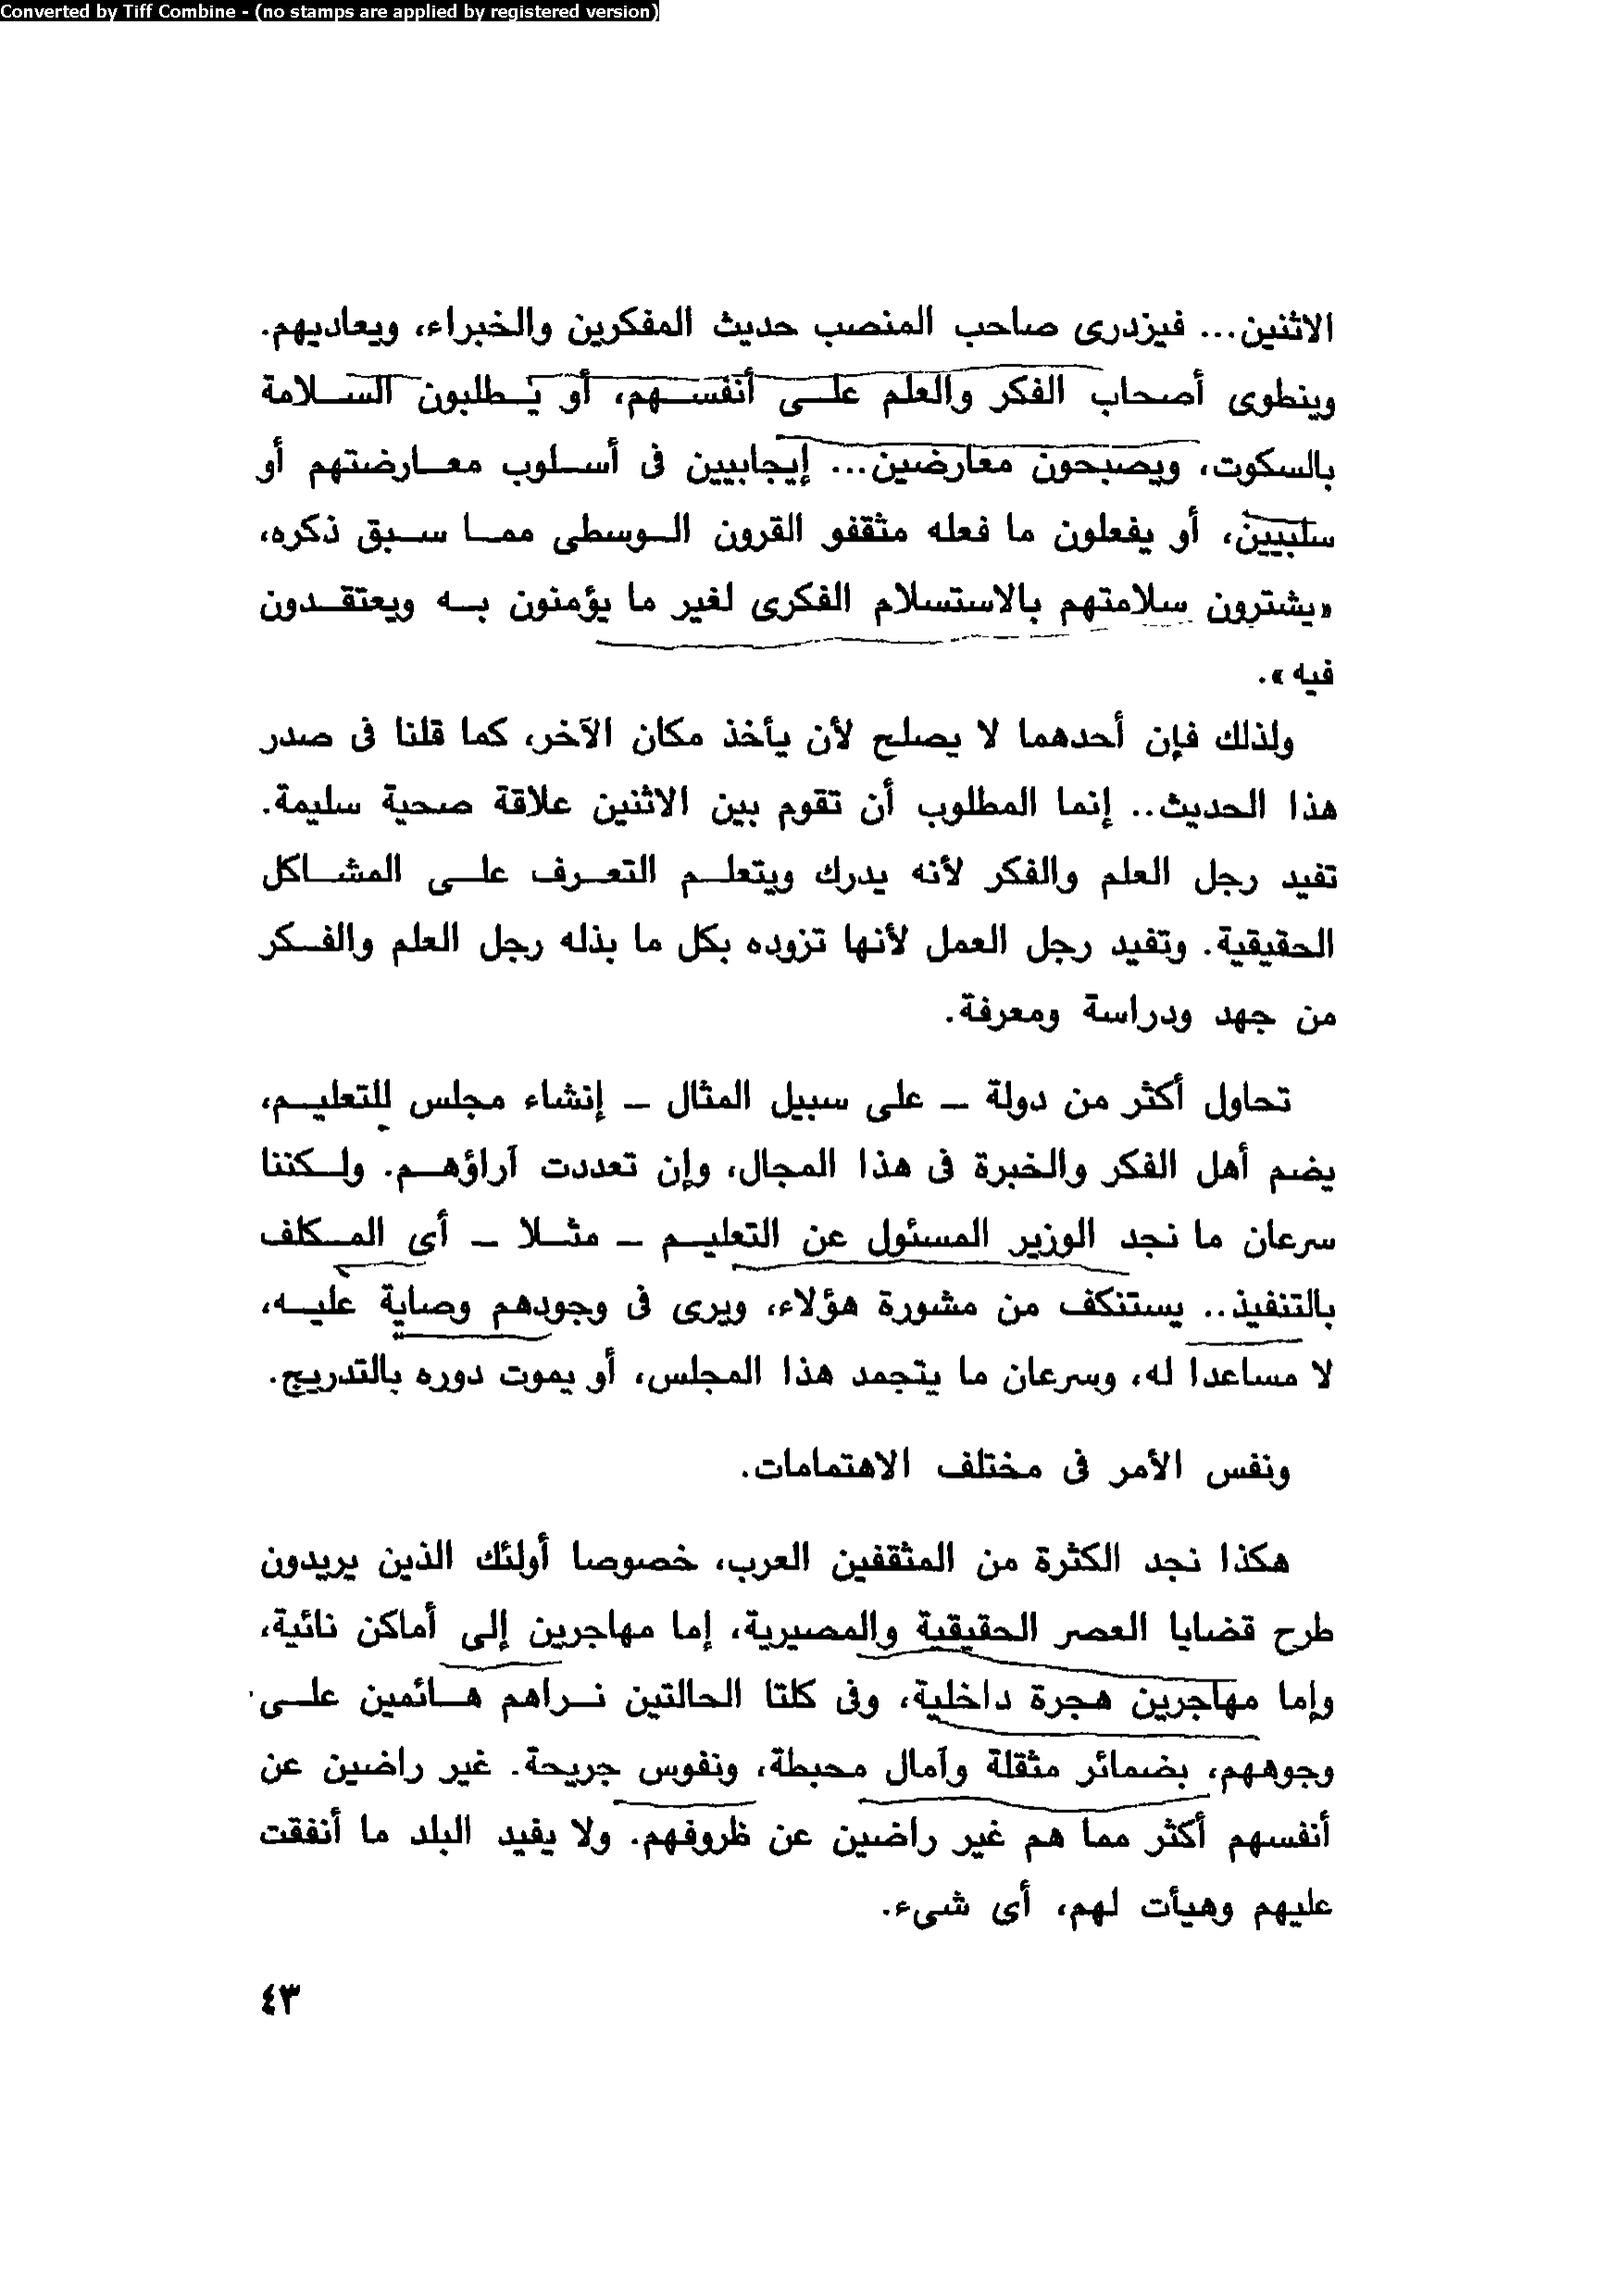 Converted by Tiff Combine - (no stamps are applied by registered version)
الاثنين... فيزدرى صاحب المنصب حديث المفكرين والخبراء، ويعاديهم.
وينطوى أصحاب الفكر والعلم على أنفسهم، أو يطلبون السلامة
بالسكوت، ويصبحون معارضين... إيجابيين فى أسلوب معارضتهم أو
سلبيين، أو يفعلون ما فعله مثقفو القرون الوسطى مما سبق ذكره،
«يشترون سلامتهم بالاستسلام الفكرى لغير ما يؤمنون به ويعتقدون
فيه».
ولذلك فإن أحدهما لا يصلح لأن يأخذ مكان الآخر، كما قلنا فى صدر
هذا الحديث.. إنما المطلوب أن تقوم بين الاثنين علاقة صحية سليمة.
تفيد رجل العلم والفكر لأنه يدرك ويتعلم التعرف على المشاكل
الحقيقية. وتفيد رجل العمل لأنها تزوده بكل ما بذله رجل العلم والفكر
من جهد ودراسة ومعرفة.
تحاول أكثر من دولة – على سبيل المثال – إنشاء مجلس للتعليم،
يضم أهل الفكر والخبرة فى هذا المجال، وإن تعددت آراؤهم. ولكننا
سرعان ما نجد الوزير المسئول عن التعليم – مثلا – أى المكلف
بالتنفيذ.. يستنكف من مشورة هؤلاء، ويرى فى وجودهم وصاية عليه،
لا مساعدا له، وسرعان ما يتجمد هذا المجلس، أو يموت دوره بالتدريج.
ونفس الأمر فى مختلف الاهتمامات.
هكذا نجد الكثرة من المثقفين العرب، خصوصا أولئك الذين يريدون
طرح قضايا العصر الحقيقية والمصيرية، إما مهاجرين إلى أماكن نائية،
وإما مهاجرين هجرة داخلية، وفى كلتا الحالتين نراهم هائمين على
وجوههم، بضمائر مثقلة وآمال محبطة، ونفوس جريحة. غير راضين عن
أنفسهم أكثر مما هم غير راضين عن ظروفهم. ولا يفيد البلد ما أنفقت
عليهم وهيأت لهم، أى شىء.
٤٣